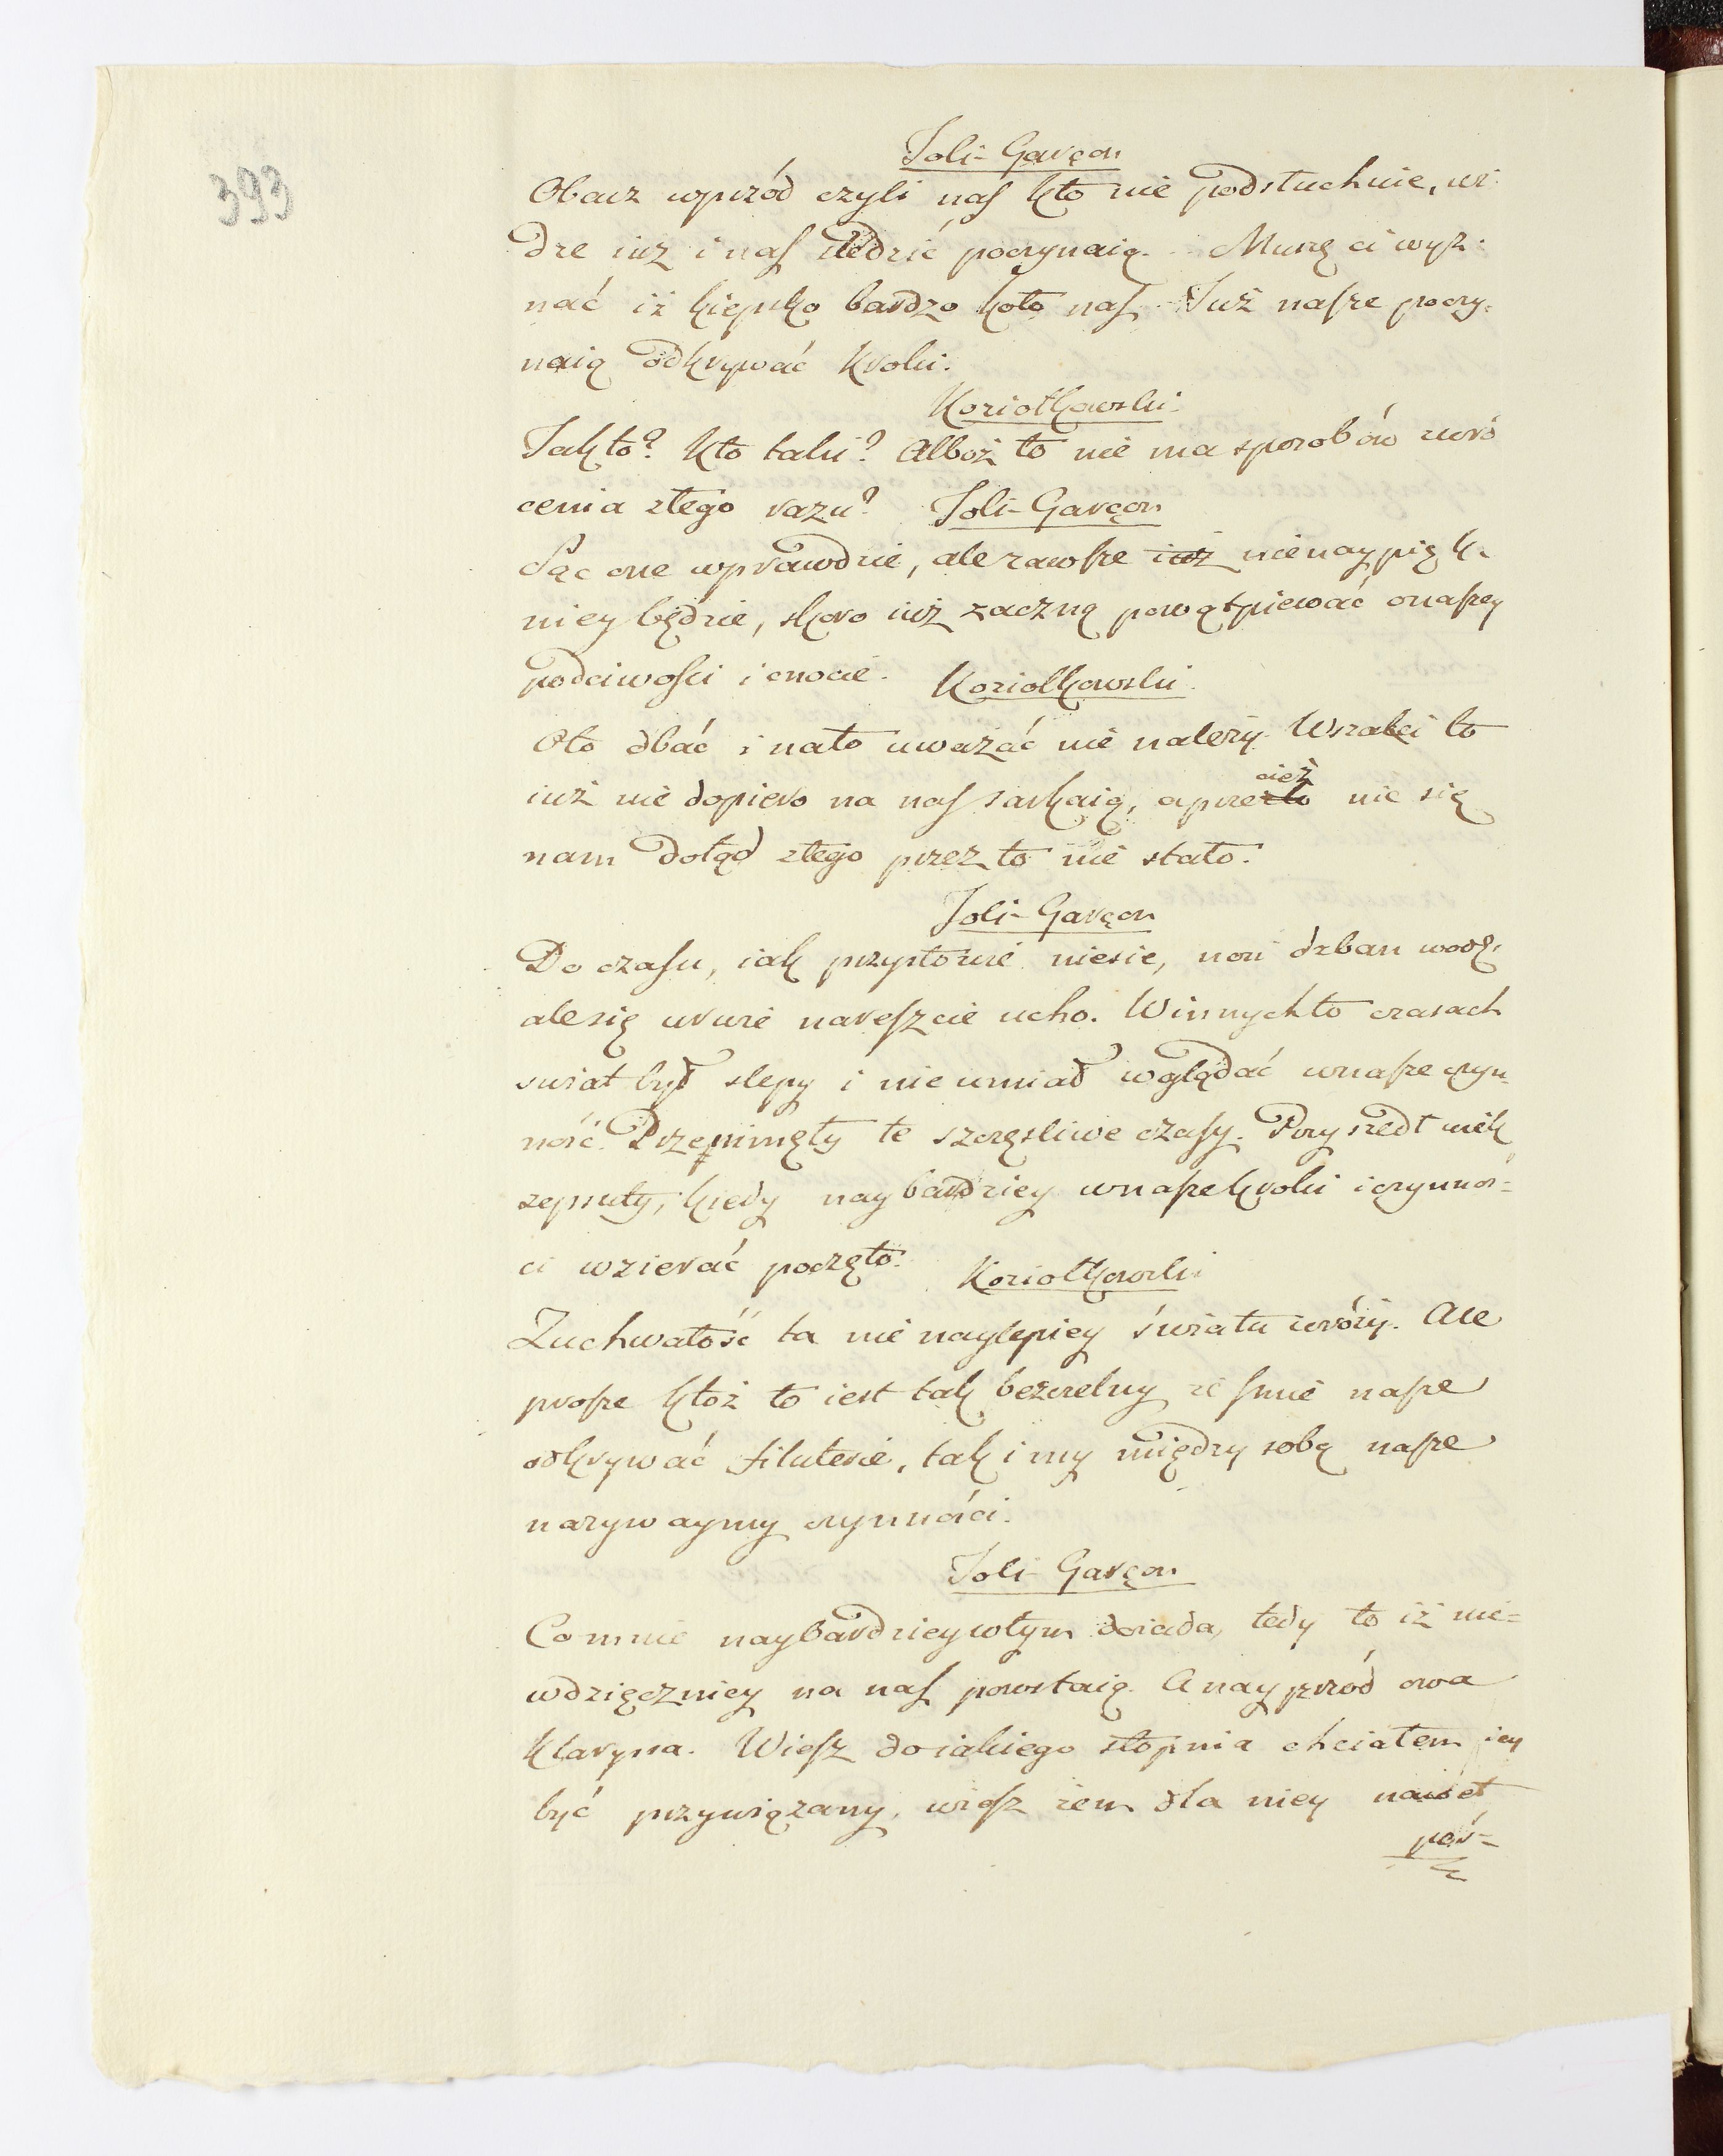 393
Joli-Garçon
Obacz wprzód czyli nas kto nie podsłuchuie, wi-
dzę iuż i nas sledzić poczynaią. Muszę ci wyz-
nać iż kiepsko bardzo koło nas. Już nasze poczy-
naią odkrywać kroki.
Koziołkowski.
Jakto? Kto taki? Alboż to nie ma sposobów zwró
cenia złego razu?
Joli-Garçon
Sąć one wprawdzie, ale zawsze iuż nienaypięk-
niey będzie, skoro iuż zaczną powątpiewać onaszey
podciwości i cnocie.
Koziołkowski.
Oto dbać i nato uważać nie należy. Wszakci to
iuż nie dopiero na nas sarkaią, aprzeto cież nic się
nam dotąd złego przez to nie stało.
Joli-Garçon
Do czasu, iak przysłowie niesie, nosi dzban wodę,
alesię urwie nareszcie ucho. Winnychto czasach
swiat był slepy i nieumiał wglądać wnasze czyn-
ność. Przeminęły te szczęsliwe czasy. Przyszedł wiek
zepsuty, kiedy naybardziey wnasze kroki iczynnoś-
ci wzierać poczęto.
Koziołkowski
Zuchwałość ta nie naylepiey światu wróży. Ale
prosze któż to iest tak bezczelny że smie nasze
odkrywać filuterie, tak i my między sobą nasze
nazywaymy czynności.
Joli-Garçon
Comnie naybardzieywtym dosiada, tedy to iż nie-
wdzięczniey na nas powstaią. A nayprzód owa
Klaryssa. Wiesz doiakiego stopnia chciałem iey
być przywiązany, wiesz żem dla niey nawet
poś-